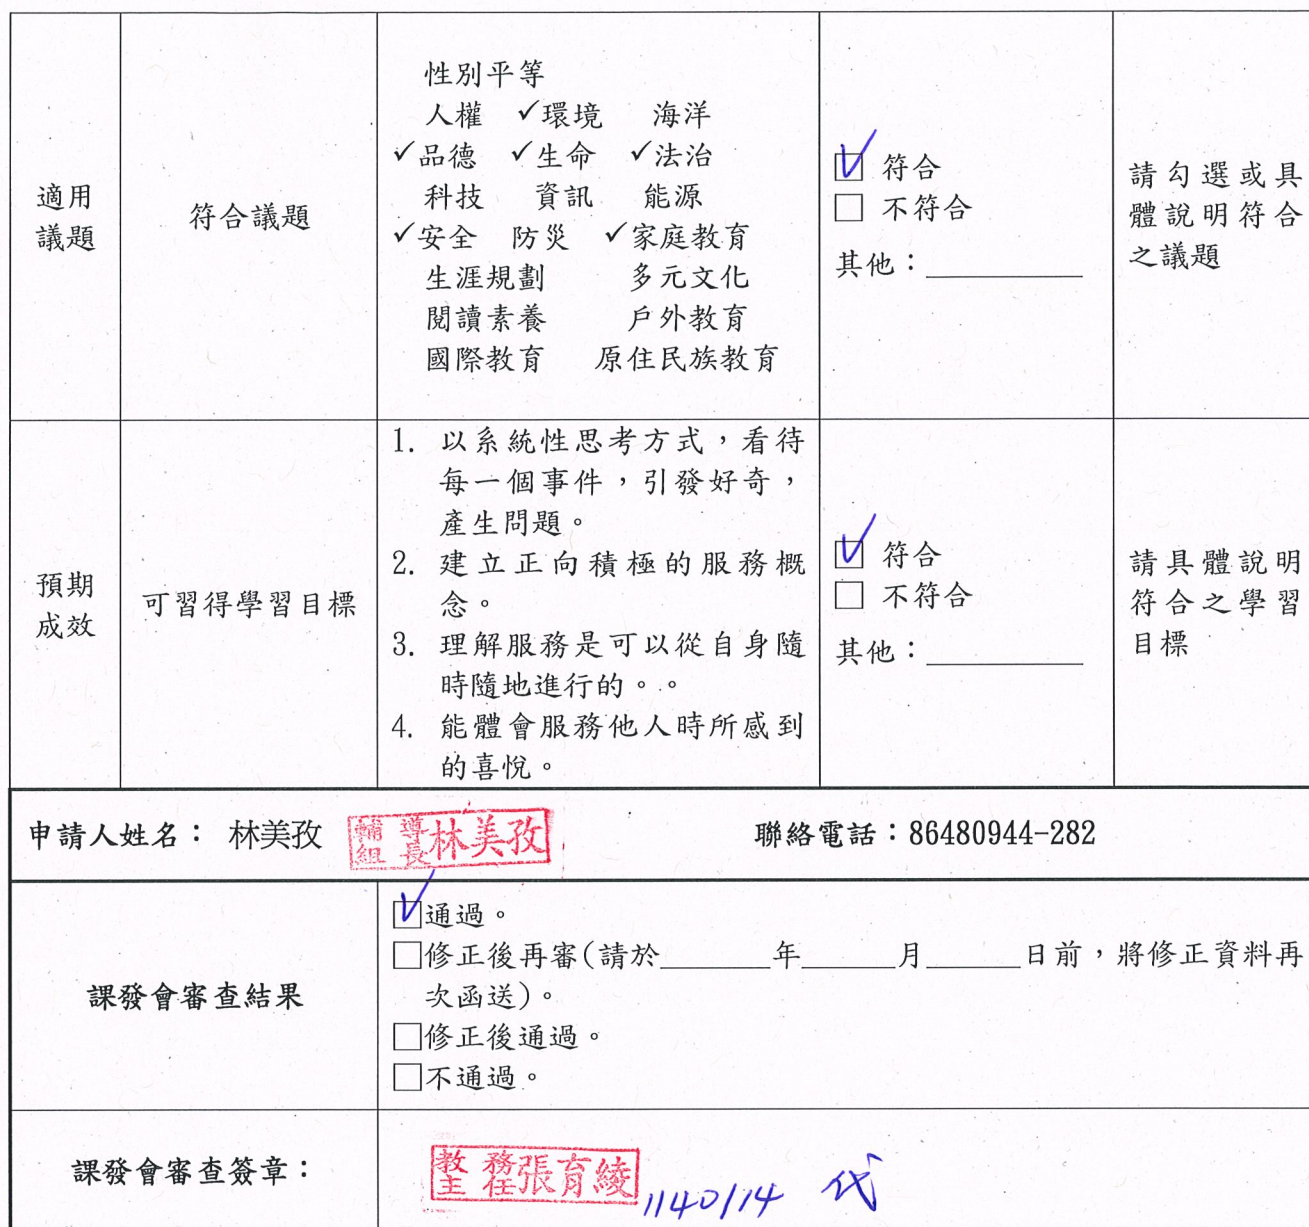 適用
議題
符合議題
性別平等
人權 ✓環境 海洋
✓品德 ✓生命 ✓法治
科技 資訊 能源
✓安全 防災 ✓家庭教育
生涯規劃 多元文化
閱讀素養 戶外教育
國際教育 原住民族教育
☑ 符合
□ 不符合
其他：__________
請勾選或具
體說明符合
之議題
預期
成效
可習得學習目標
1. 以系統性思考方式，看待
每一個事件，引發好奇，
產生問題。
2. 建立正向積極的服務概
念。
3. 理解服務是可以從自身隨
時隨地進行的。。
4. 能體會服務他人時所感到
的喜悅。
☑ 符合
□ 不符合
其他：__________
請具體說明
符合之學習
目標
申請人姓名： 林美孜 輔導組長林美孜
聯絡電話：86480944-282
課發會審查結果
☑通過。
□修正後再審(請於_______年______月______日前，將修正資料再
次函送)。
□修正後通過。
□不通過。
課發會審查簽章：
教務主任張育綾 1140114 代